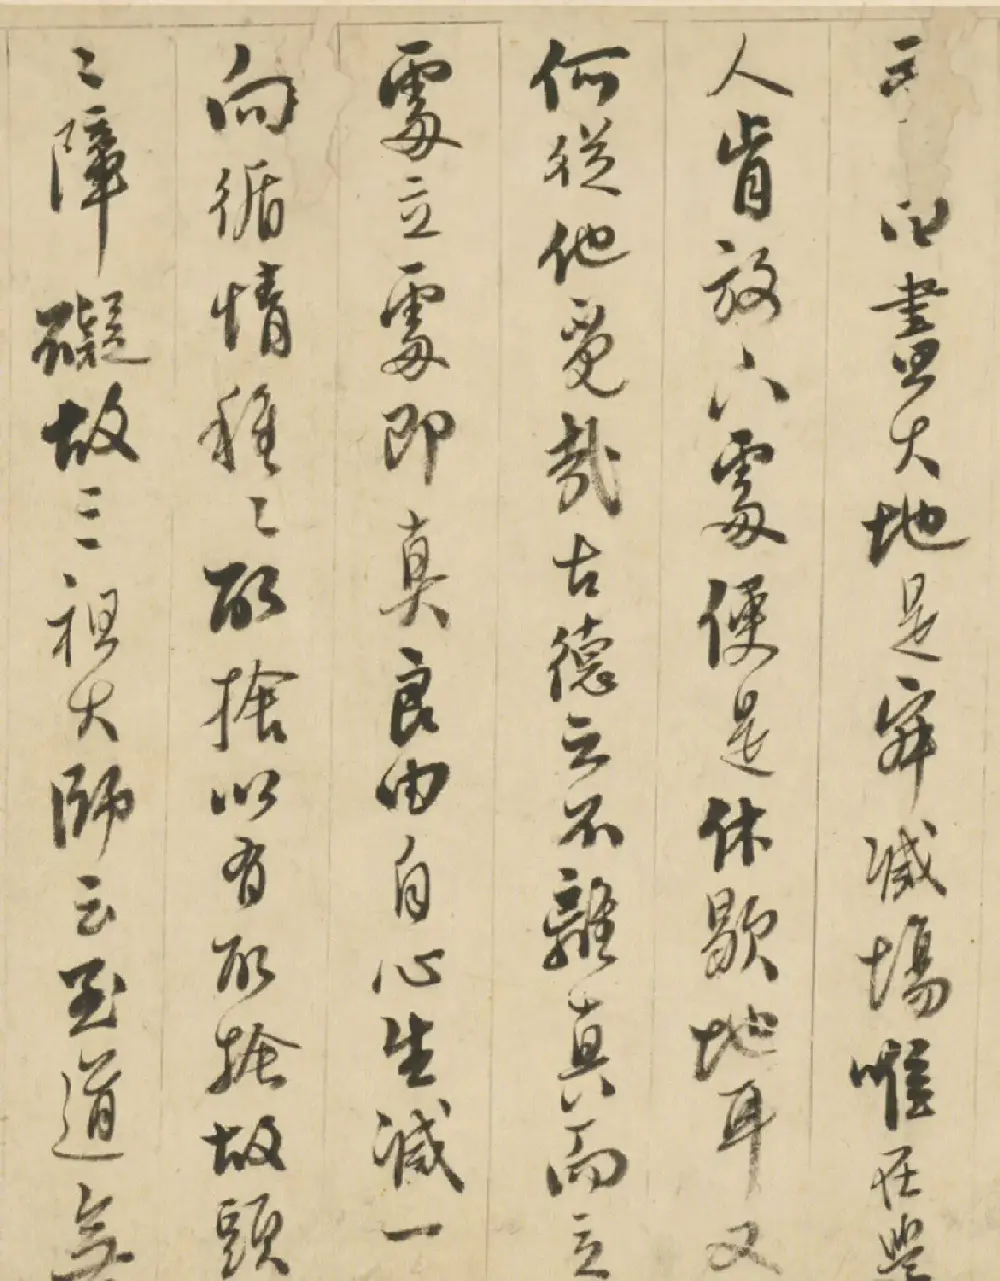 盡大地是寂滅場唯在當
人肯放下處便是休歇地耳又
何從他覓哉古德云不離真而立
處立處即真良由自心生滅一
向循情種〻取捨以有取捨故頭
〻障礙故三祖大師云至道無